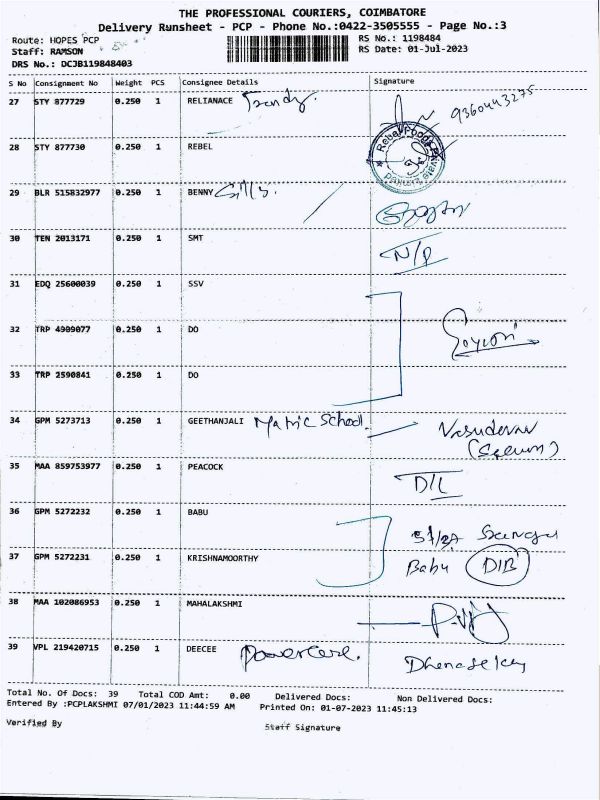 THE PROFESSIONAL COURIERS, COIMBATORE
Delivery Runsheet - PCP - Phone No.:0422-3505555 - Page No.:3
Route: HOPES PCP
RS No.: 1198484
Staff: RAMSON
RS Date: 01-Jul-2023
DRS No.: DCJB119848403
S No Consignment No Weight PCS Consignee Details Signature
27 STY 877729 0.250 1 RELIANACE Trendy. 9360443275
28 STY 877730 0.250 1 REBEL Rebel Foods Private Limited
29 BLR 515832977 0.250 1 BENNY
30 TEN 2013171 0.250 1 SMT N/D
31 EDQ 25600039 0.250 1 SSV
32 TRP 4909077 0.250 1 DO
33 TRP 2590841 0.250 1 DO
34 GPM 5273713 0.250 1 GEETHANJALI Matric School. Vasudevan
35 MAA 859753977 0.250 1 PEACOCK D/L
36 GPM 5272232 0.250 1 BABU
37 GPM 5272231 0.250 1 KRISHNAMOORTHY Babu DIB
38 MAA 102086953 0.250 1 MAHALAKSHMI
39 VPL 219420715 0.250 1 DEECEE Powercare. Dhenasekar
Total No. Of Docs: 39 Total COD Amt: 0.00 Delivered Docs: Non Delivered Docs:
Entered By :PCPLAKSHMI 07/01/2023 11:44:59 AM Printed On: 01-07-2023 11:45:13
Verified By Staff Signature